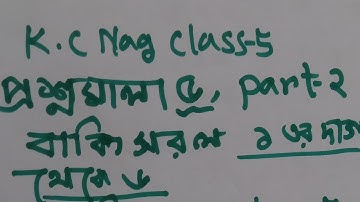 K.C Nag Class-5
প্রশ্নমালা ৫, part-২
বাকি সরল ১ এর দাগ
থেকে ৬